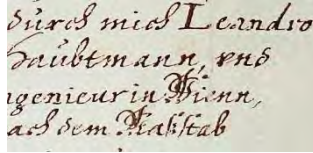 durch mich Leandro
Haubtmann, vnd
ngenieur in Wienn,
ach dem Maßstab